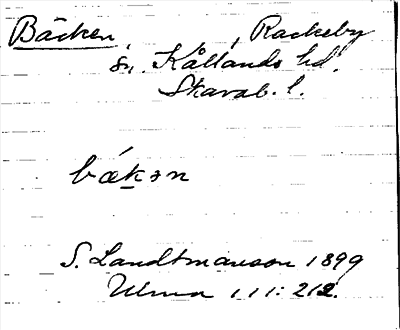 Bäcken, , Rackeby
sn. Kållands hd.
Skarab. l.
bǽkən
S. Landtmanson 1899
Ulma 111: 212.